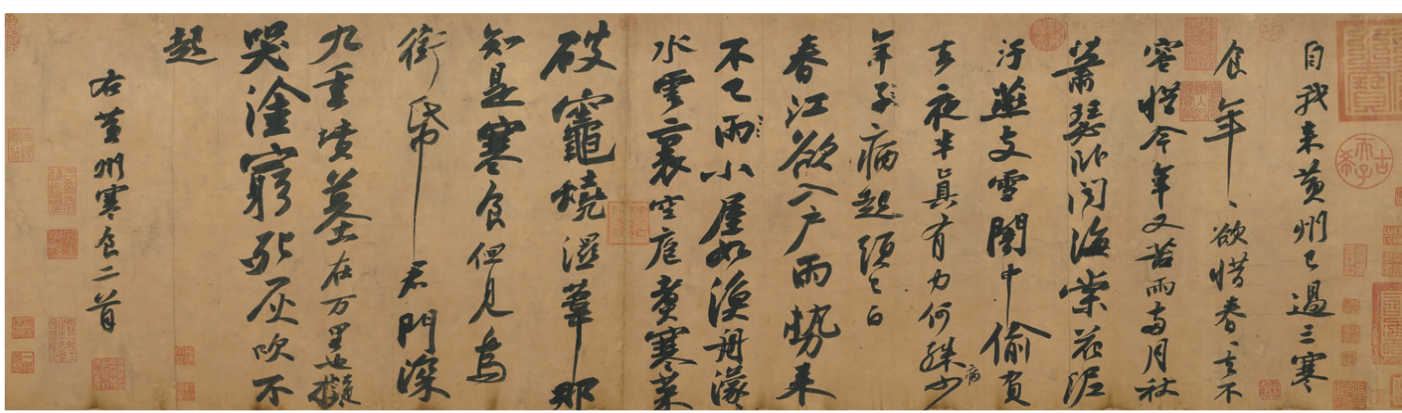 自我來黃州已過三寒
食年〻欲惜春〻去不
容惜今年又苦雨兩月秋
蕭瑟臥聞海棠花泥
汙燕支雪闇中偷負
去夜半真有力何殊少
病
年子病起頭已白
春江欲入戶雨勢來
不已雨小屋如漁舟濛〻
水雲裏空庖煮寒菜
破竈燒濕葦那
知是寒食但見烏
銜帋君門深
九重墳墓在万里也擬
哭塗窮死灰吹不
起
右黃州寒食二首
古希天子